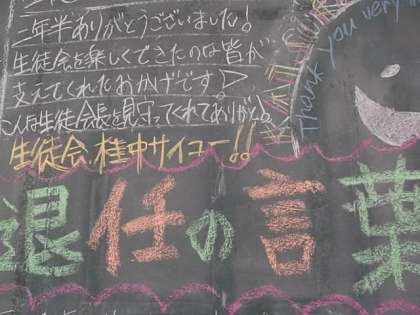 二年半ありがとうございました!
生徒会を楽しくできたのは皆が
支えてくれたおかげです!
こんな生徒会長を見守ってくれてありがと!
生徒会、桂中サイコー!!
Thank you very m
退任の言葉